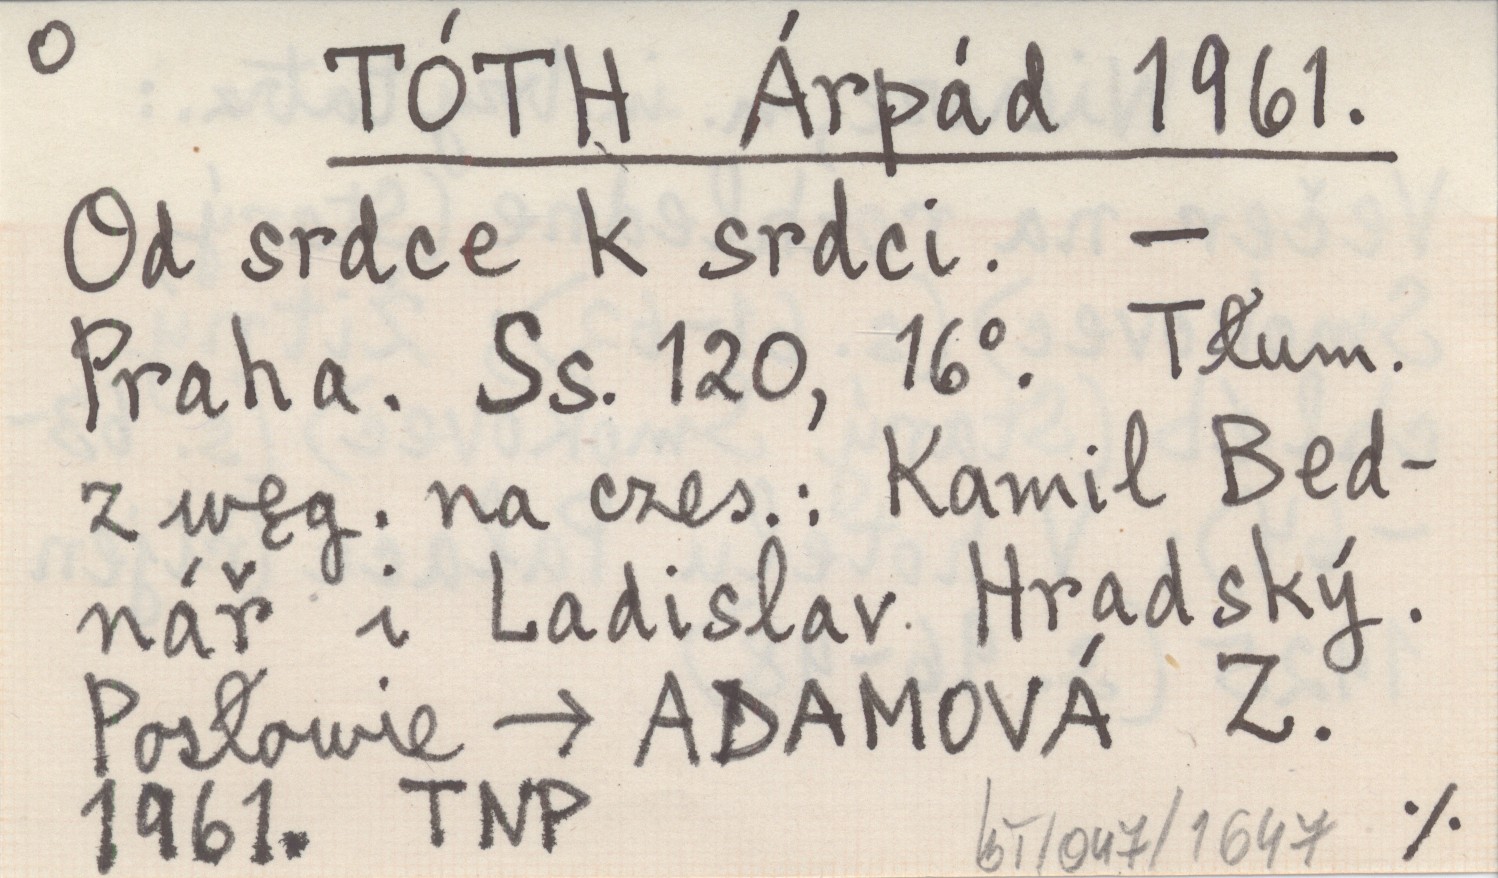 O
TÓTH Árpád 1961.
Od srdce k srdci. —
Praha. Ss. 120, 16°. Tłum.
z węg. na czes.: Kamil Bed-
nář i Ladislav Hradský.
Posłowie → ADAMOVÁ Z.
1961. TNP
/047/1647 ./.